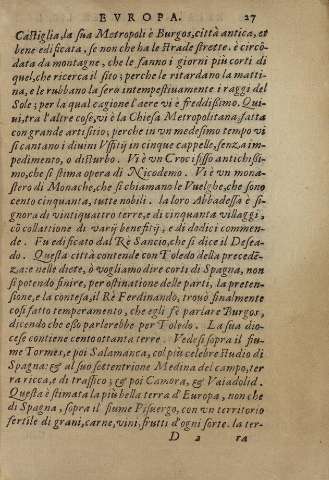 EVROPA. 27
Castiglia, la sua Metropoli è Burgos, città antica, et
bene edificata, se non che ha le strade strette. è circõ-
data da montagne, che le fanno i giorni piu corti di
quel, che ricerca il sito; perche le ritardano la matti-
na, e le rubbano la sera intempestiuamente i raggi del
Sole; per la qual cagione l'aere vi è freddissimo. Qui-
ui, tra l'altre cose, vi è la Chiesa Metropolitana fatta
con grande artifitio; perche in vn medesimo tempo vi
si cantano i diuini Vffitij in cinque cappelle, senza im-
pedimento, o disturbo. Vi è vn Crocifisso antichissi-
mo, che si stima opera di Nicodemo. Vi è vn mona-
stero di Monache, che si chiamano le Vuelghe, che sono
cento cinquanta, tutte nobili. la loro Abbadessa è si-
gnora di vintiquattro terre, e di cinquanta villaggi,
cõ collattione di varij benefitij, e di dodici commen-
de. Fu edificato dal Rè Sancio, che si dice il Desea-
do. Questa città contende con Toledo della precedẽ-
za: e nelle diete, ò vogliamo dire corti di Spagna, non
si potendo finire, per ostinatione delle parti, la preten-
sione, e la contesa, il Rè Ferdinando, trouò finalmente
cosi fatto temperamento, che egli fè parlare Burgos,
dicendo che esso parlerebbe per Toledo. La sua dio-
cese contiene cento ottanta terre. Vedesi sopra il fiu-
me Tormes, e poi Salamanca, col piu celebre studio di
Spagna: & al suo settentrione Medina del campo, ter
ra ricca, e di traffico; & poi Camora, & Vaiadolid.
Questa è stimata la più bella terra d'Europa, non che
di Spagna, sopra il fiume Pisuergo, con vn territorio
fertile di grani, carne, vini, frutti d'ogni sorte. la ter-
D 2 ra